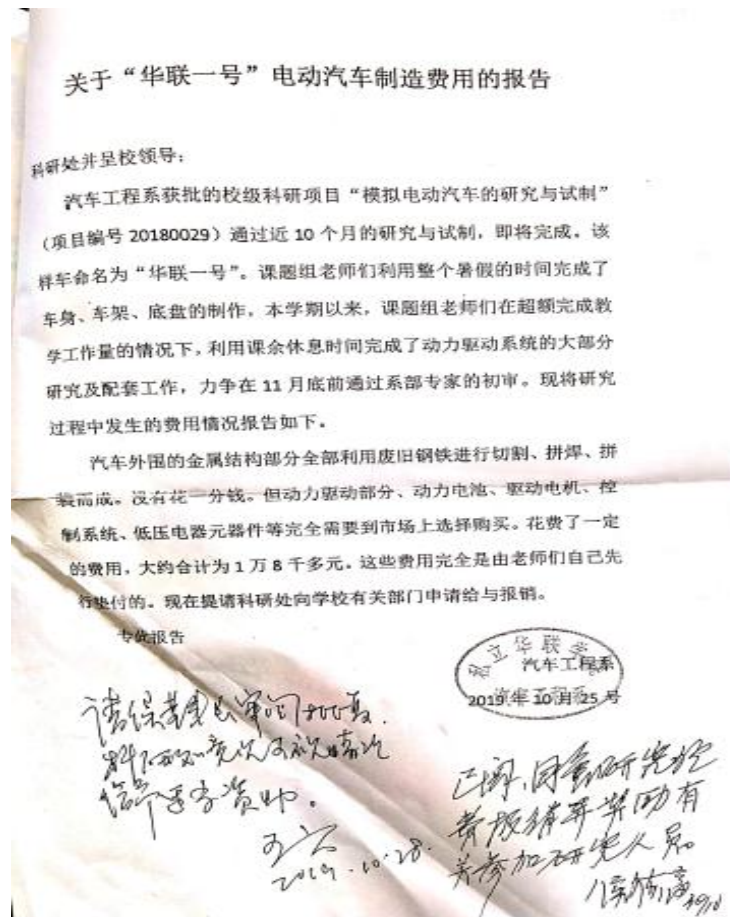 关于“华联一号”电动汽车制造费用的报告
科研处并呈校领导：
汽车工程系获批的校级科研项目“模拟电动汽车的研究与试制”
（项目编号 20180029）通过近 10 个月的研究与试制，即将完成。该
样车命名为“华联一号”。课题组老师们利用整个暑假的时间完成了
车身、车架、底盘的制作，本学期以来，课题组老师们在超额完成教
学工作量的情况下，利用课余休息时间完成了动力驱动系统的大部分
研究及配套工作，力争在 11 月底前通过系部专家的初审。现将研究
过程中发生的费用情况报告如下。
汽车外围的金属结构部分全部利用废旧钢铁进行切割、拼焊、拼
装而成。没有花一分钱。但动力驱动部分、动力电池、驱动电机、控
制系统、低压电器元器件等完全需要到市场上选择购买。花费了一定
的费用，大约合计为 1 万 8 千多元。这些费用完全是由老师们自己先
行垫付的。现在提请科研处向学校有关部门申请给与报销。
专此报告
立华联学
汽车工程系
2019 年 10 月 25 号
2019.10.28.
已阅，同意研究经
费报销并奖励有
关参加研究人员